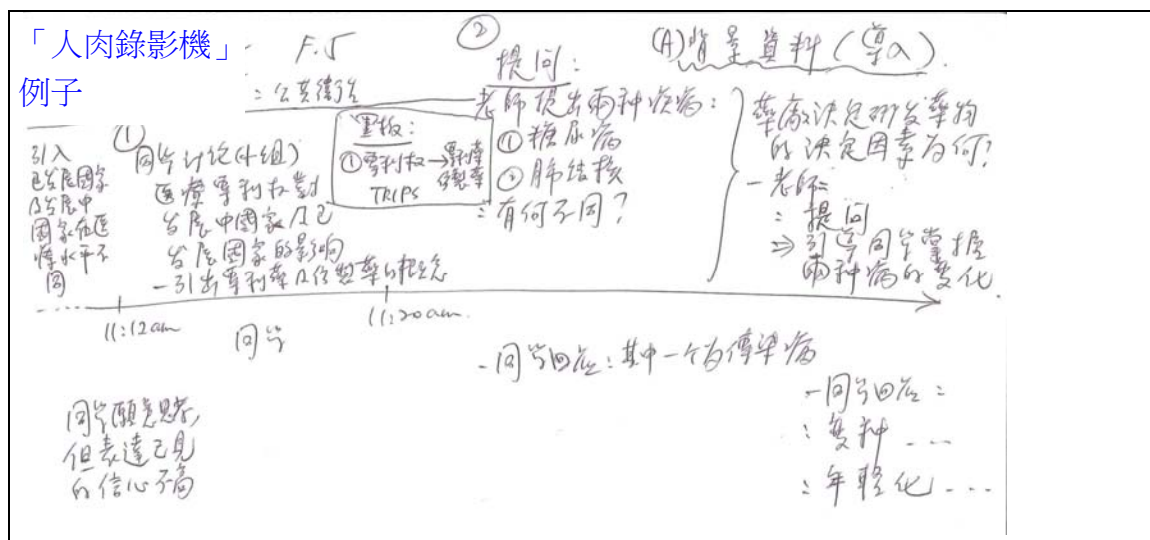 「人肉錄影機」
例子
F.5
：公共衛生
引入
已发展國家
及发展中
國家在医
療水平不
同
①
同学讨论(小组)
医療專利权對
发展中國家及已
发展國家的影响
-引出專利藥及仿製藥的概念
黑板：
①專利权→
TRIPS
②
提问：
老師提出兩种疾病：
①糖尿病
②肺结核
：有何不同？
(A)背景資料(導入)
藥廠決定研发藥物
的決定因素为何？
-老師
：提问
⇒引導同学掌握
兩种病的变化
......
11:12am
11:20am.
同学
同学願意思考,
但表達己見
的信心不高
-同学回应：其中一个为傳染病
-同学回应：
：变种...
：年輕化....